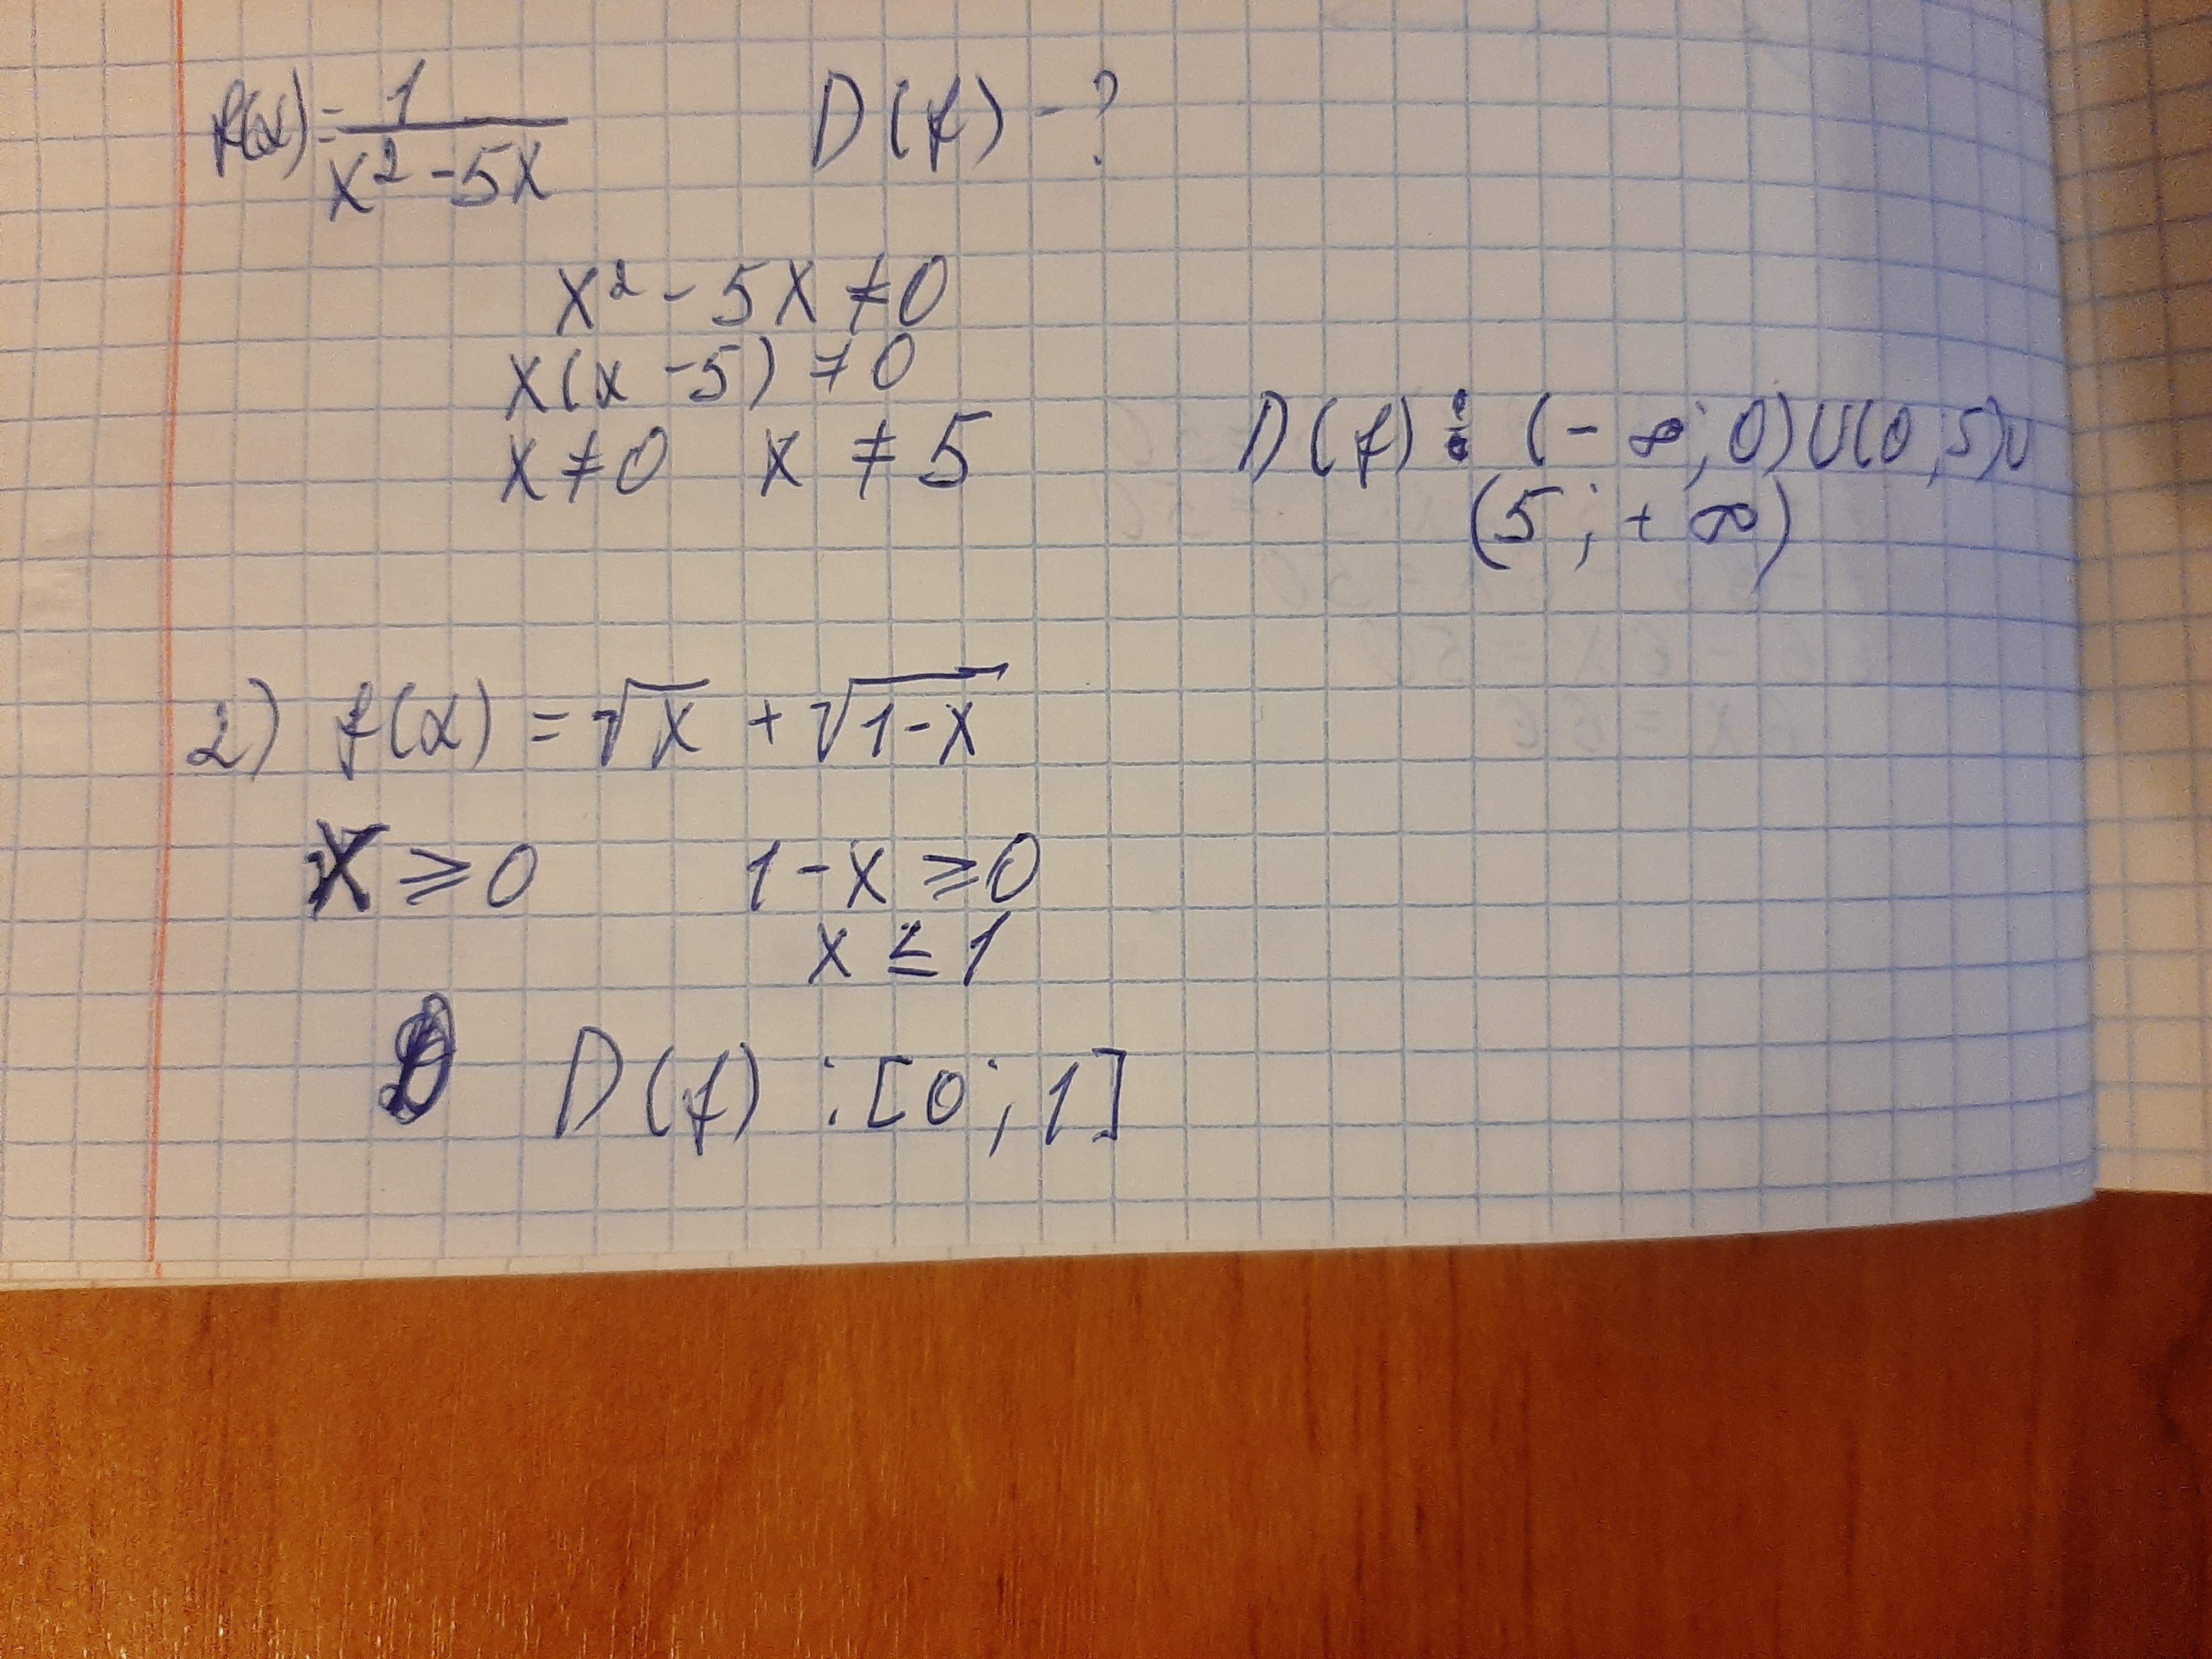 f(x) = 1/(x² - 5x) D(f) - ?
x² - 5x ≠ 0
x(x - 5) ≠ 0
x ≠ 0 x ≠ 5
D(f) : (-∞; 0) ∪ (0; 5) ∪
(5; +∞)
2) f(x) = √x + √(1-x)
x ⩾ 0 1 - x ⩾ 0
x ≤ 1
D(f) : [0; 1]